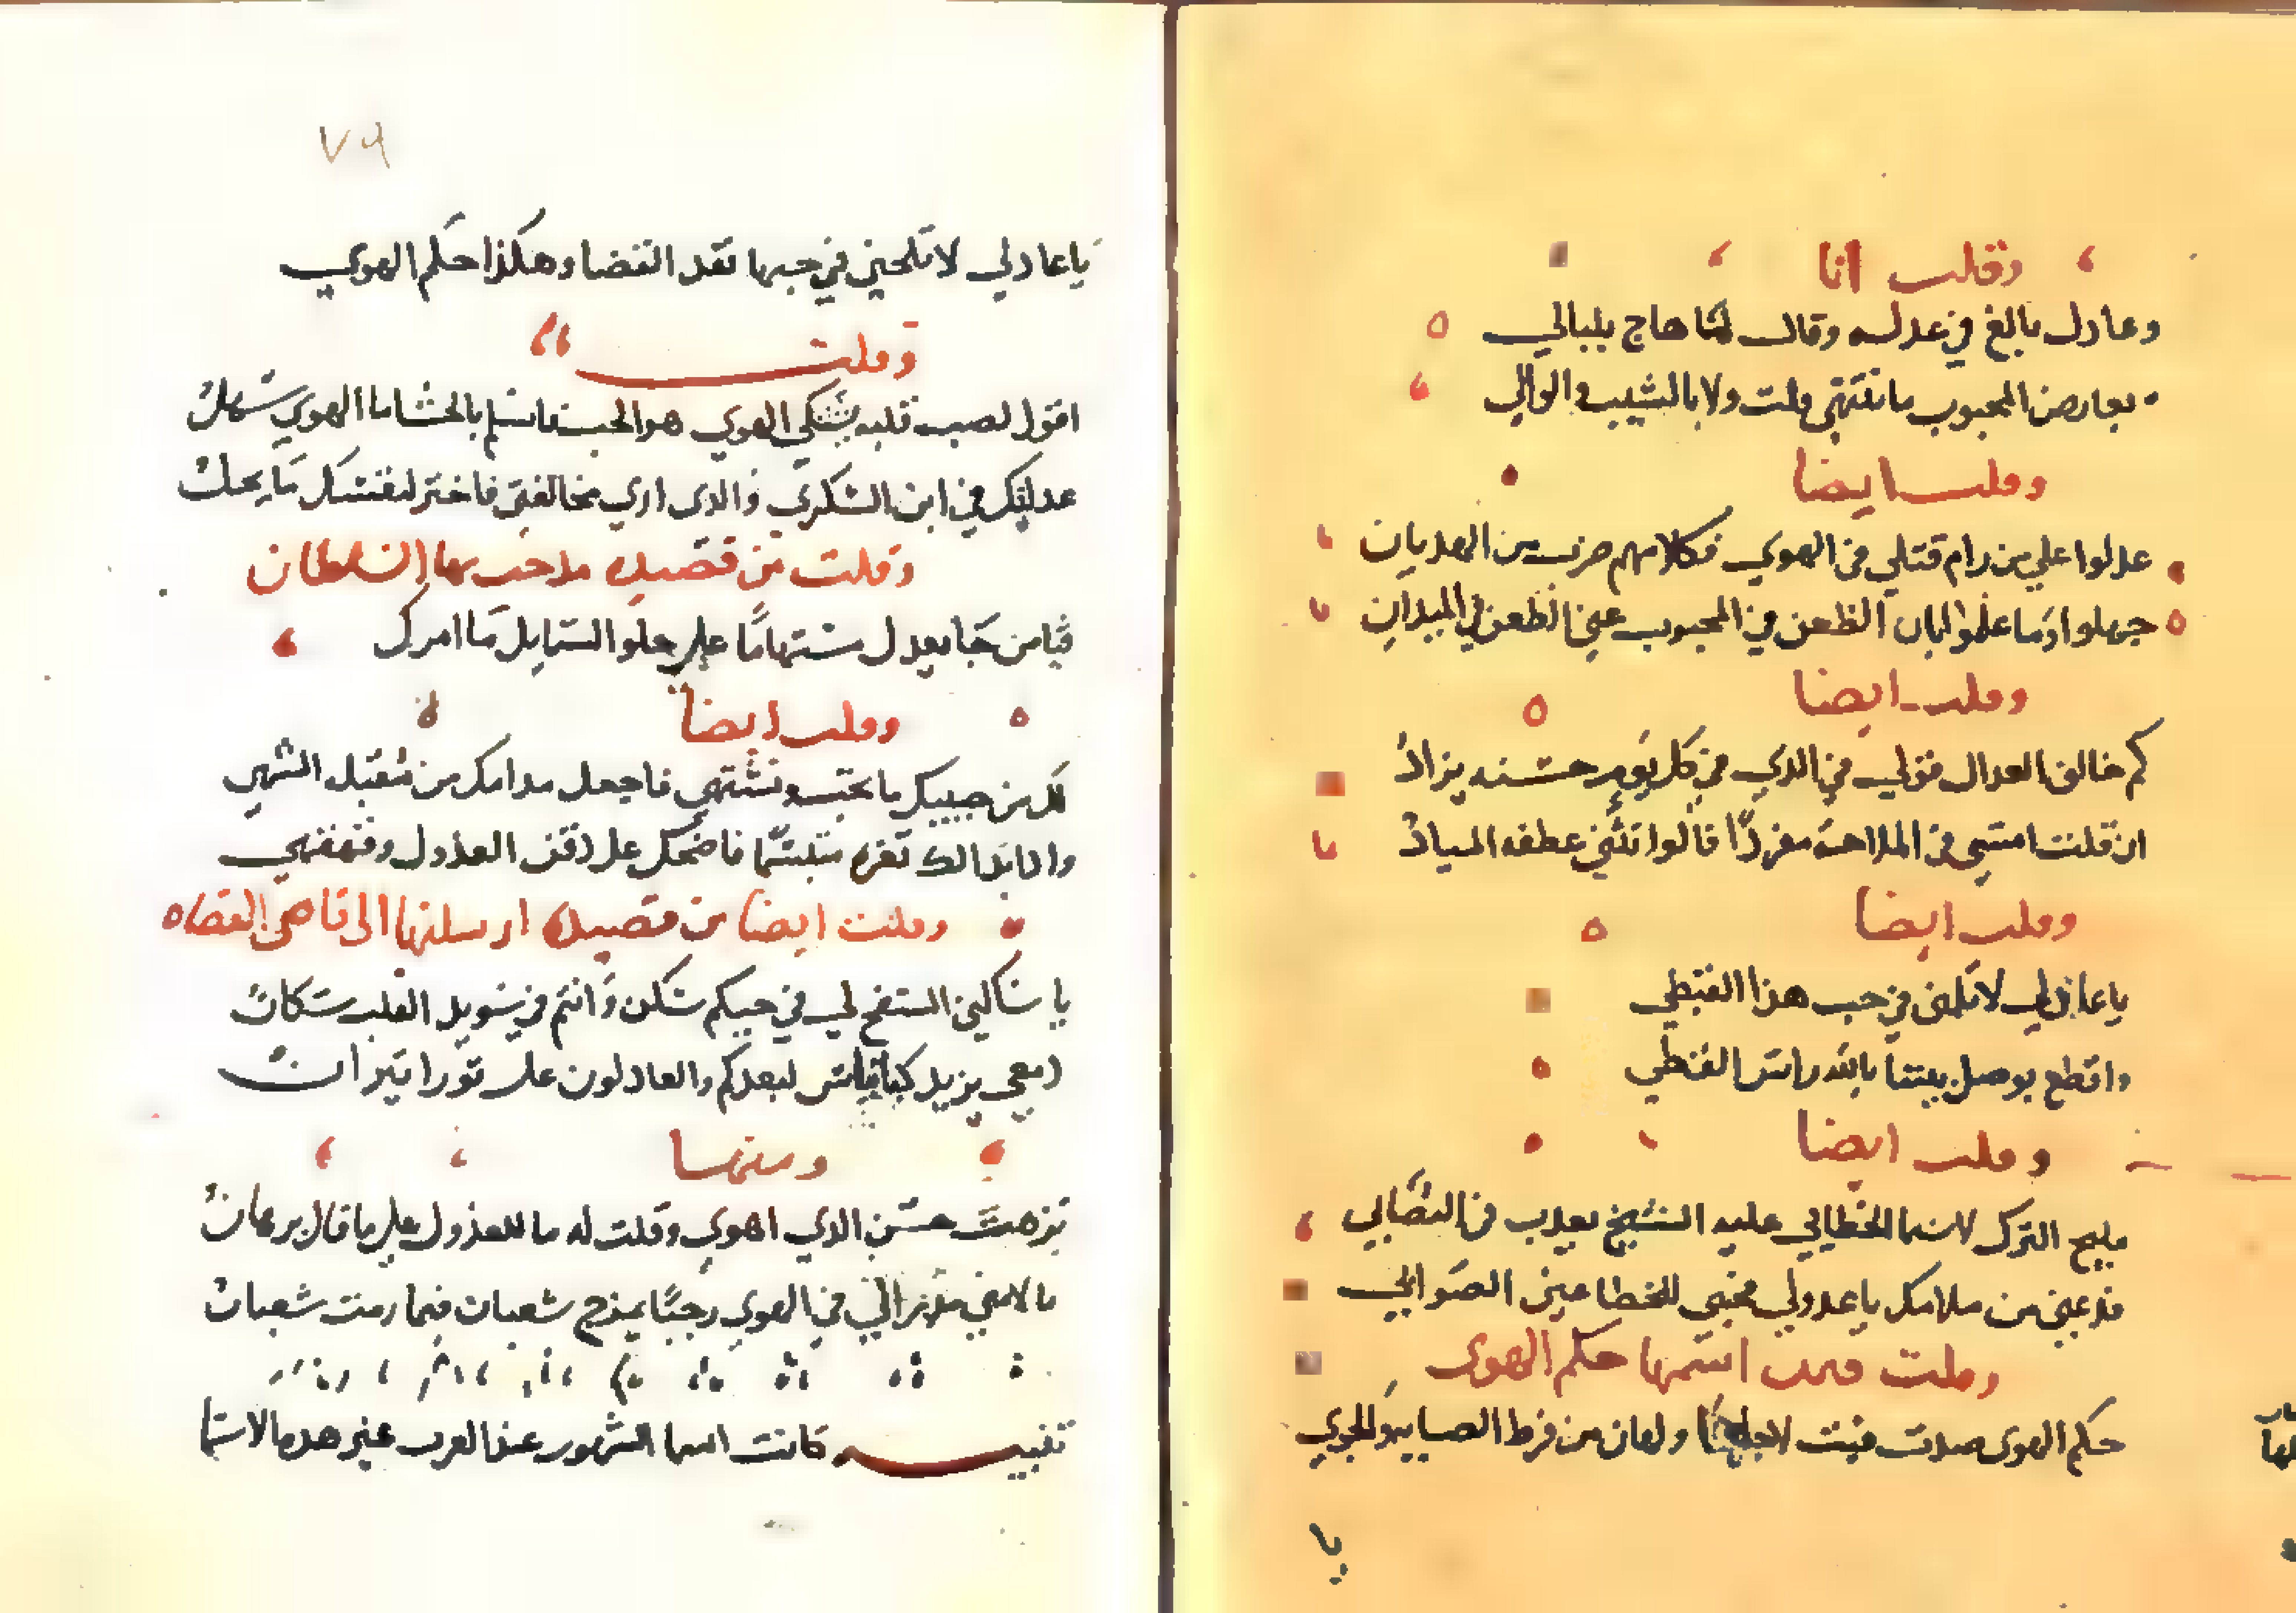 وقلت انا
وعادل بالغ في عدله وقال لما هاج بلبالي
بعارض المحبوب ما تنتهي قلت ولا بالشيب والوالي
وقلت ايضا
عدلوا علي من رام قتلي في الهوي فكلامهم ضرب من الهديان
جهلوا وما علموا بان الظعن في المحبوب عين الظعن في الميدان
وقلت ايضا
كم خالف العدال قولي في الذي في كل يوم حسنه يزداد
ان قلت امسي في الملاحة مفردًا قالوا تثني عطفه المياد
وقلت ايضا
ياعاذلي لا تلمني في حب هذا القبطي
واقطع بوصل بيتنا بالله راس القطي
وقلت ايضا
مليح الترك لاسما الخطايي عليه الشيخ يعدب في التصابي
فدعني من ملامك ياعدولي محبي للخطا عين الصوابي
وقلت فيمن اسمها حكم الهوي
حكم الهوي صدت فبت لاجلها ولهان من فرط الصبابه والجوي
يا
٧٩
ياعادلي لا تلحني في حبها نقد القضا وهكذا حكم الهوي
وقلت
اقول لصب قلبه يشتكي الهوي هو الحب فاسلم بالحشا ما الهوي سهل
عدلتك في ابن السكري والذي اري مخالفتي فاختر لنفسك ما يحلو
وقلت من قصيده مدحت بها السلطان
فيامن جا يعدل مستهامًا علي حلو الشمايل ما امرك
وقلت ايضا
لك من حبيبك ما تحب وتشتهي فاجعل مدامك من مقبل الشهي
وادا بدا لك ثغره متبسمًا فاضحك علي ذقن العذول وقهقهي
وقلت ايضا من قصيدة ارسلتها الي قاضي القضاه
يا ساكني السفح لي في حبكم سكن وانتم في سويد القلب سكان
دمعي يزيد لبعدكم والعادلون علي ثورا نيران
ومنها
نزهت حسن الذي اهوي وقلت له ما للعذول علي ما قال برهان
ما لامني مذ راني في الهوي رجبًا يمذح شعبان فيما رمت شعبان
تنبيه كانت اسما الشهور عند العرب غير هده الاسما